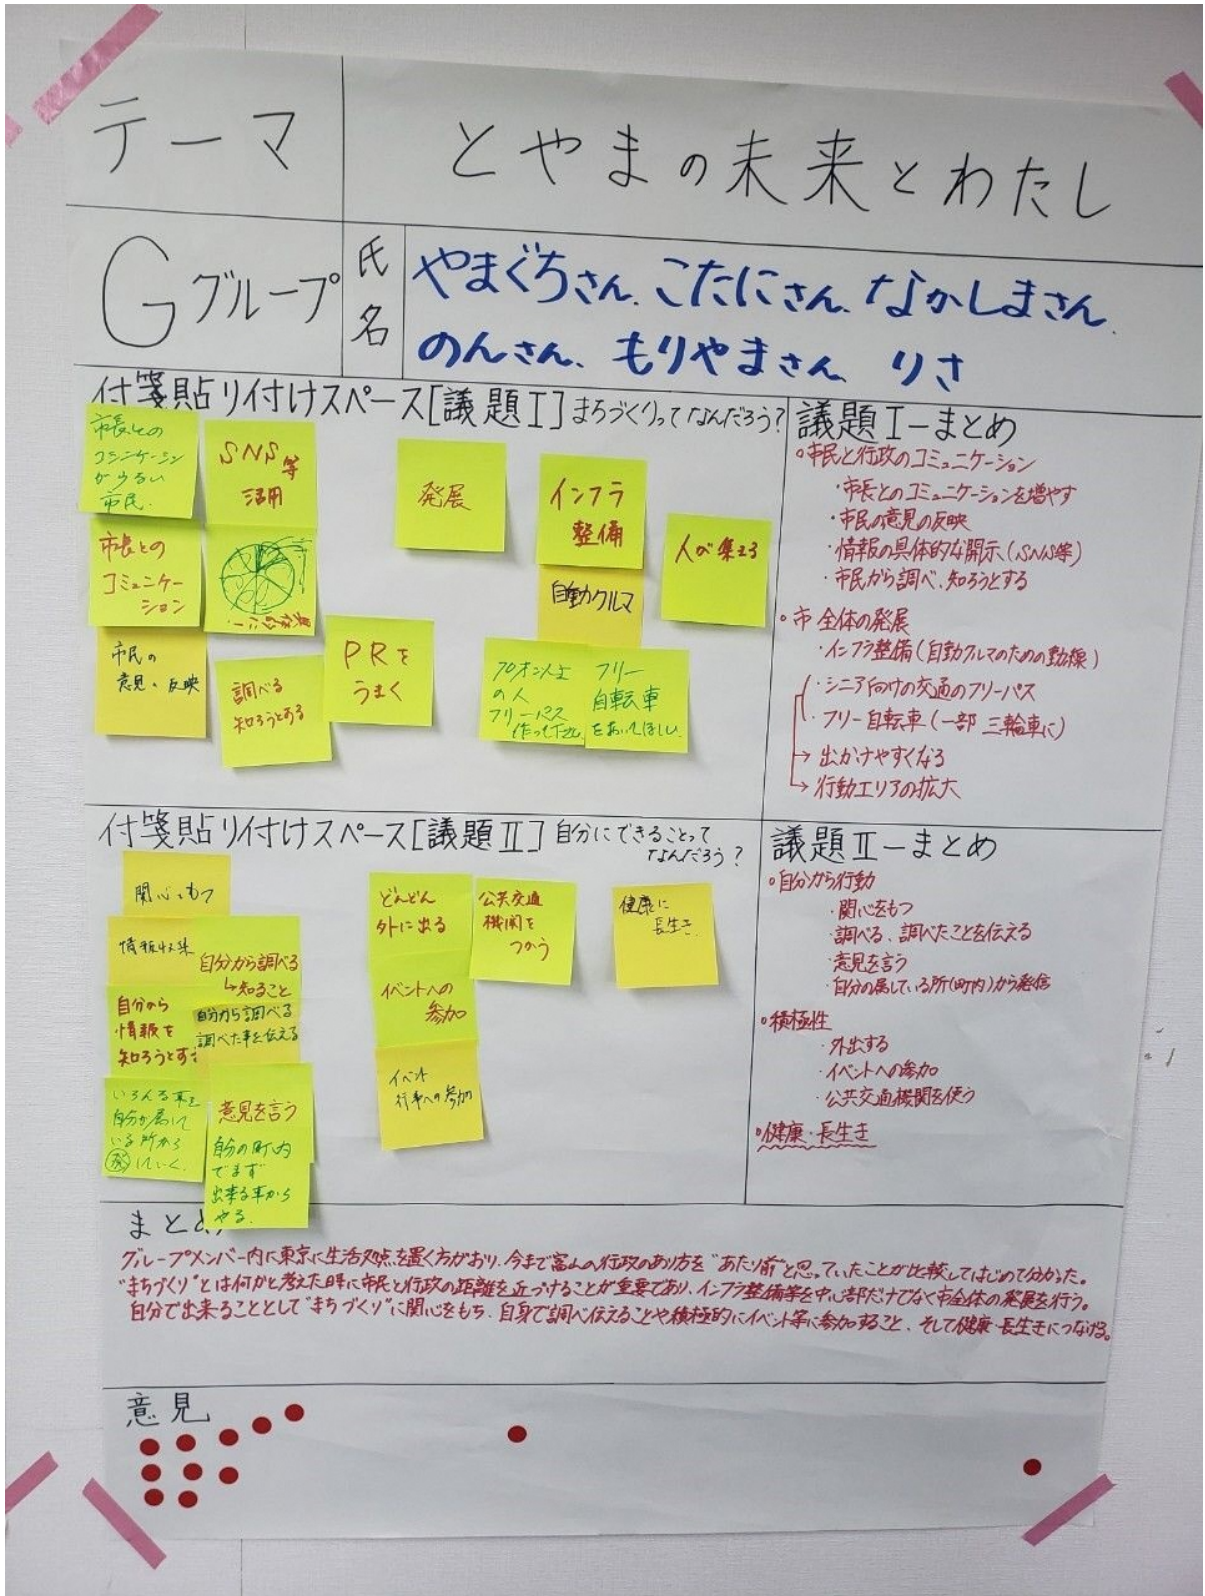 テーマ
とやまの未来とわたし
Gグループ
氏名
やまぐちさん、こたにさん、なかしまさん、
のんさん、もりやまさん、りさ
付箋貼り付けスペース[議題Ⅰ]まちづくりってなんだろう?
市長との
コミニケーション
がうるい
市民.
SNS等
活用
発展
インフラ
整備
人が集える
市長との
コミュニケー
ション
自動クルマ
市民の
意見の反映
調べる
知ろうとする
PRを
うまく
70才以上
の人
フリーパス
作って下さい
フリー
自転車
をおいてほしい
議題Ⅰーまとめ
○市民と行政のコミュニケーション
・市長とのコミュニケーションを増やす
・市民の意見の反映
・情報の具体的な開示(SNS等)
・市民から調べ、知ろうとする
○市全体の発展
・インフラ整備(自動クルマのための動線)
・シニア向けの交通のフリーパス
・フリー自転車(一部三輪車に)
→出かけやすくなる
→行動エリアの拡大
付箋貼り付けスペース[議題Ⅱ]自分にできることって
なんだろう?
関心をもつ
情報収集
自分から調べる
↳知ること
自分から
情報を
知ろうとする
自分から調べる
調べた事を伝える
いろんな事を
自分が属して
いる所から
発していく
意見を言う
自分の町内
でまず
出来る事から
やる.
どんどん
外に出る
イベントへの
参加
イベント
行事への参加
公共交通
機関を
つかう
健康に
長生き
議題Ⅱーまとめ
○自分から行動
・関心をもつ
・調べる、調べたことを伝える
・意見を言う
・自分の属している所(町内)から発信
○積極性
・外出する
・イベントへの参加
・公共交通機関を使う
○健康・長生き
まとめ
グループメンバー内に東京に生活拠点を置く方がおり、今まで富山の行政のあり方を"あたり前"と思っていたことが比較してはじめて分かった。
"まちづくり"とは何かと考えた時に市民と行政の距離を近づけることが重要であり、インフラ整備等を中心部だけでなく市全体の発展を行う。
自分で出来ることとして"まちづくり"に関心をもち、自身で調べ伝えることや積極的にイベント等に参加すること、そして健康・長生きにつなげる。
意見